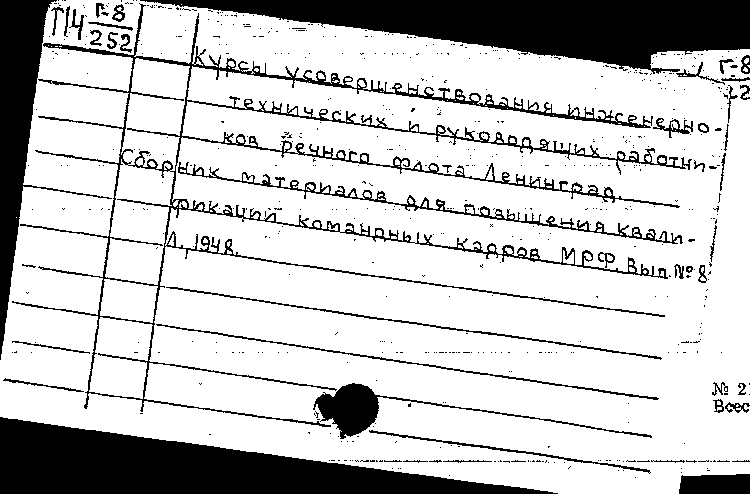 П14 Г-8
252
Курсы усовершенствования инженерно-
технических и руководящих работни-
ков речного флота. Ленинград.
Сборник материалов для повышения квали-
фикации командных кадров МРФ. Вып. № 8
Л., 1948.
Г-8
22
№ 2
Всес